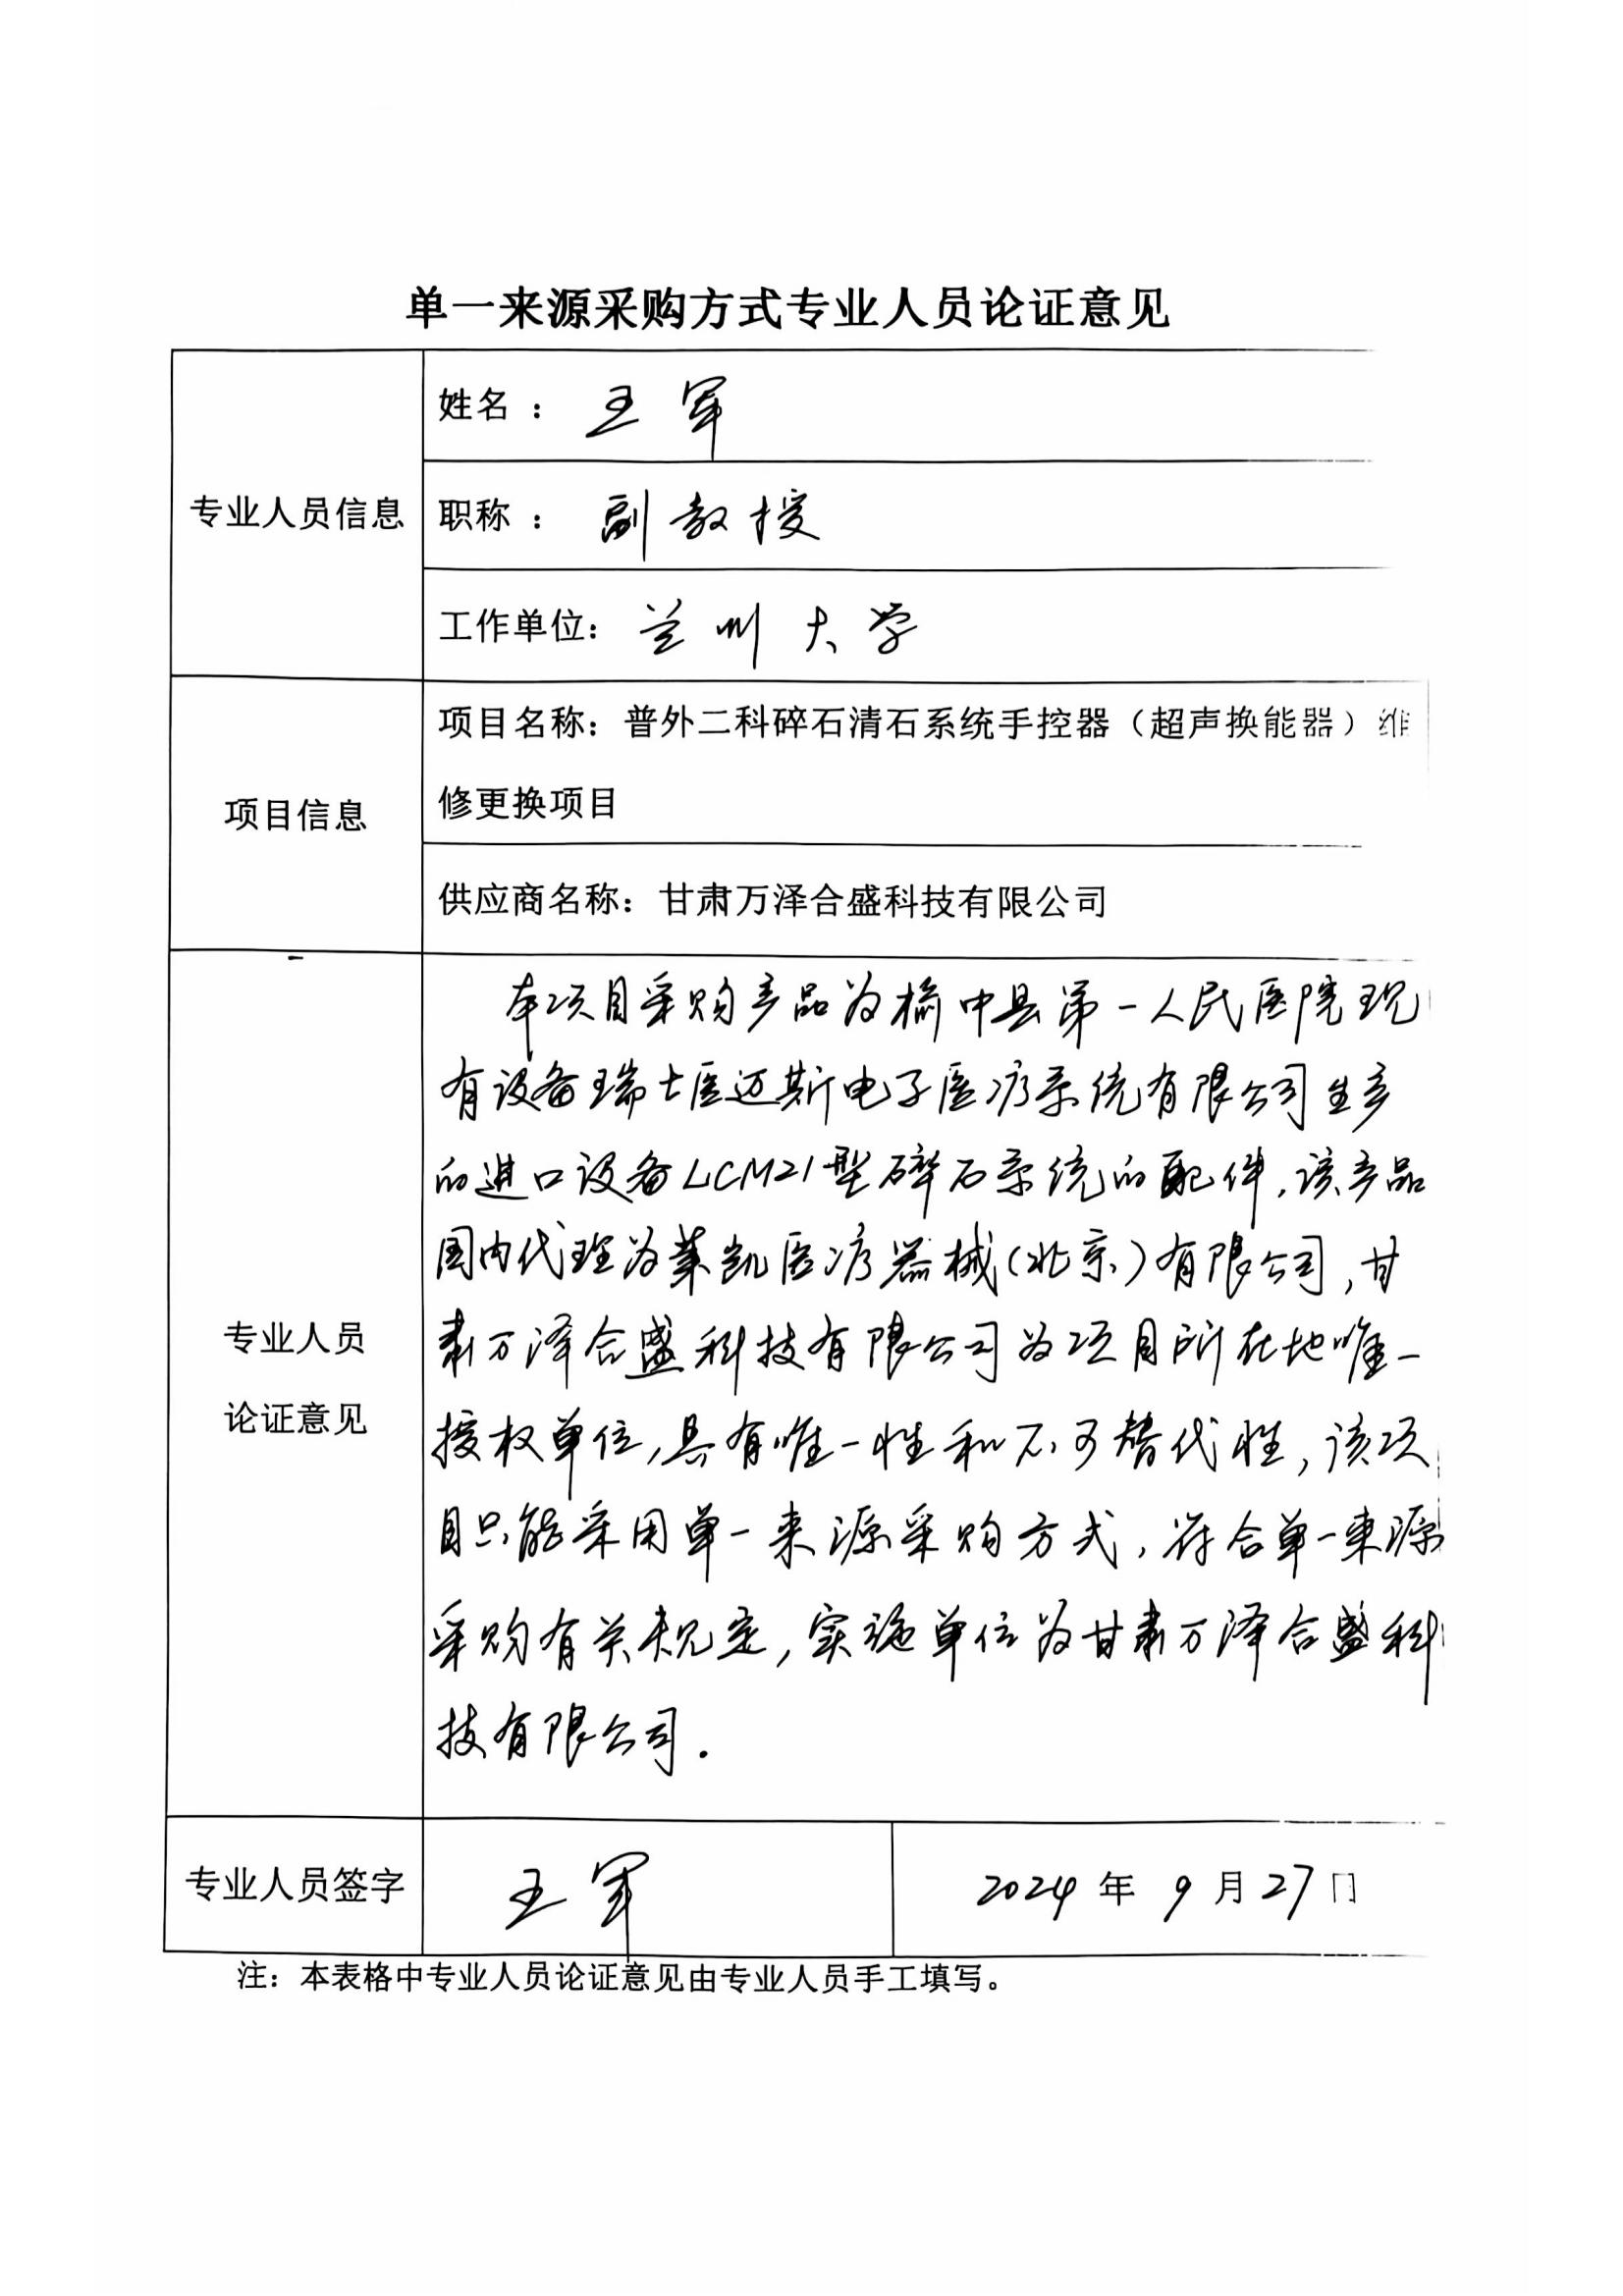 单一来源采购方式专业人员论证意见
专业人员信息
姓名：王军
职称：副教授
工作单位：兰州大学
项目信息
项目名称：普外二科碎石清石系统手控器（超声换能器）维
修更换项目
供应商名称：甘肃万泽合盛科技有限公司
专业人员
论证意见
本项目采购产品为榆中县第一人民医院现
有设备瑞士医迈斯电子医疗系统有限公司生产
的进口设备LCM21型碎石系统的配件，该产品
国内代理为莱凯医疗器械（北京）有限公司，甘
肃万泽合盛科技有限公司为项目所在地唯一
授权单位，具有唯一性和不可替代性，该项
目只能采用单一来源采购方式，符合单一来源
采购有关规定，实施单位为甘肃万泽合盛科
技有限公司.
专业人员签字
王军
2024年9月27日
注：本表格中专业人员论证意见由专业人员手工填写。